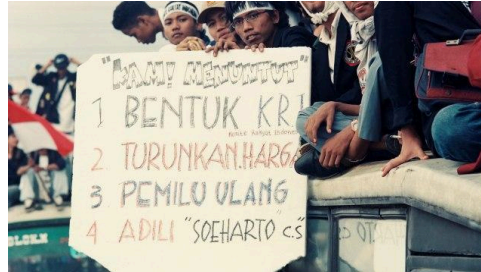 "KAMI MENUNTUT"
1 BENTUK K.R.I
2 TURUNKAN.HARGA
3 PEMILU ULANG
4 ADILI "SOEHARTO cs"
BLOK.M